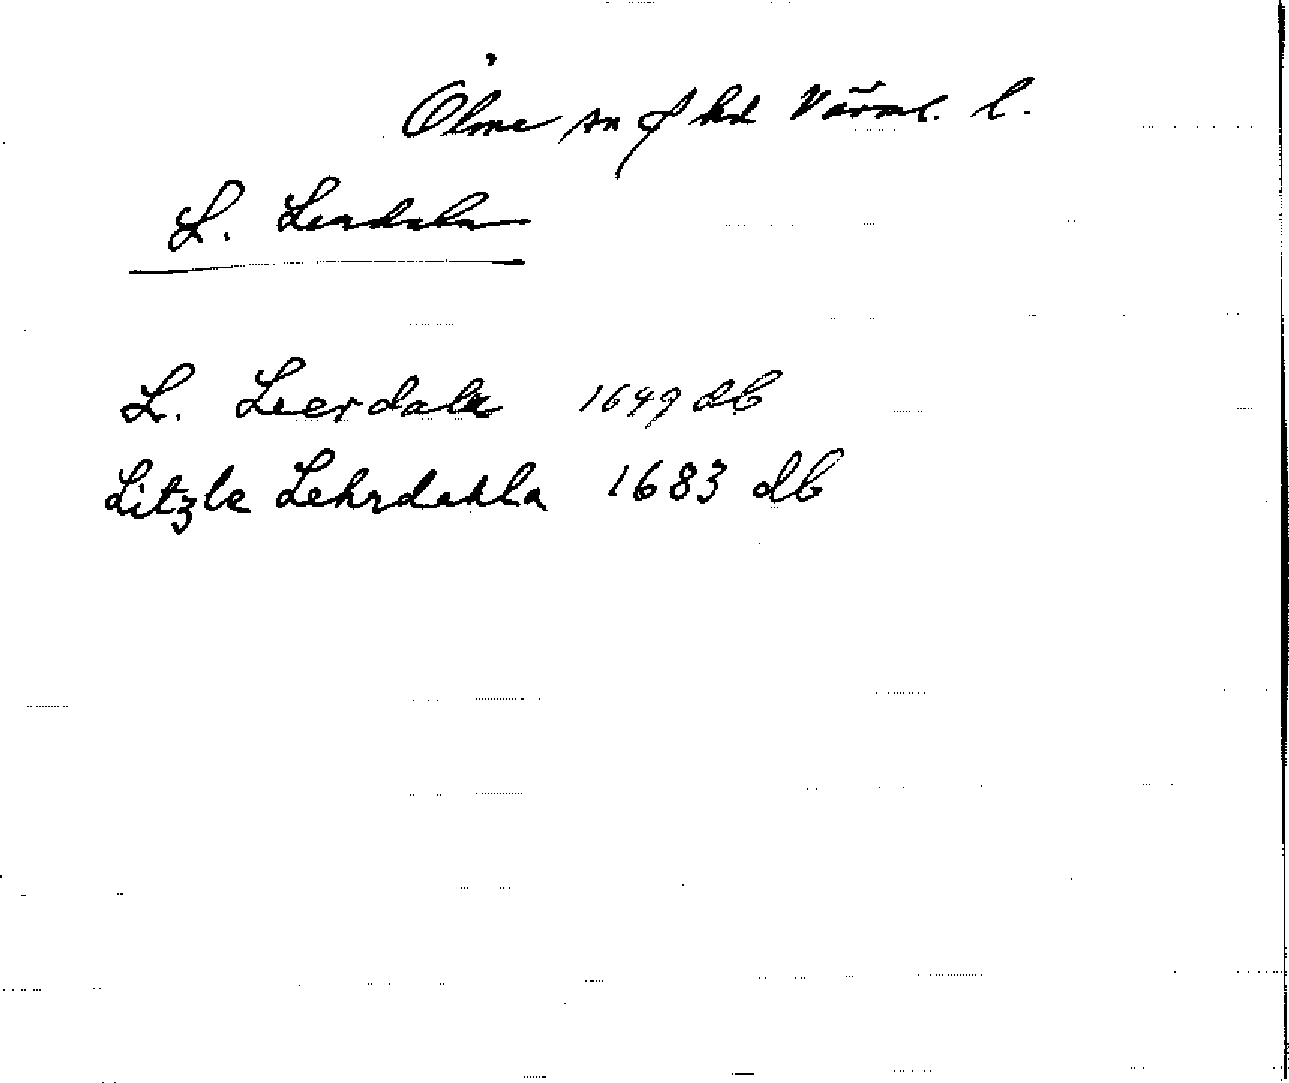 Ölme sn o f hd Värml. l.
L. Lerdalen
L. Leerdala 1649 db
Litzle Lehrdahla 1683 db